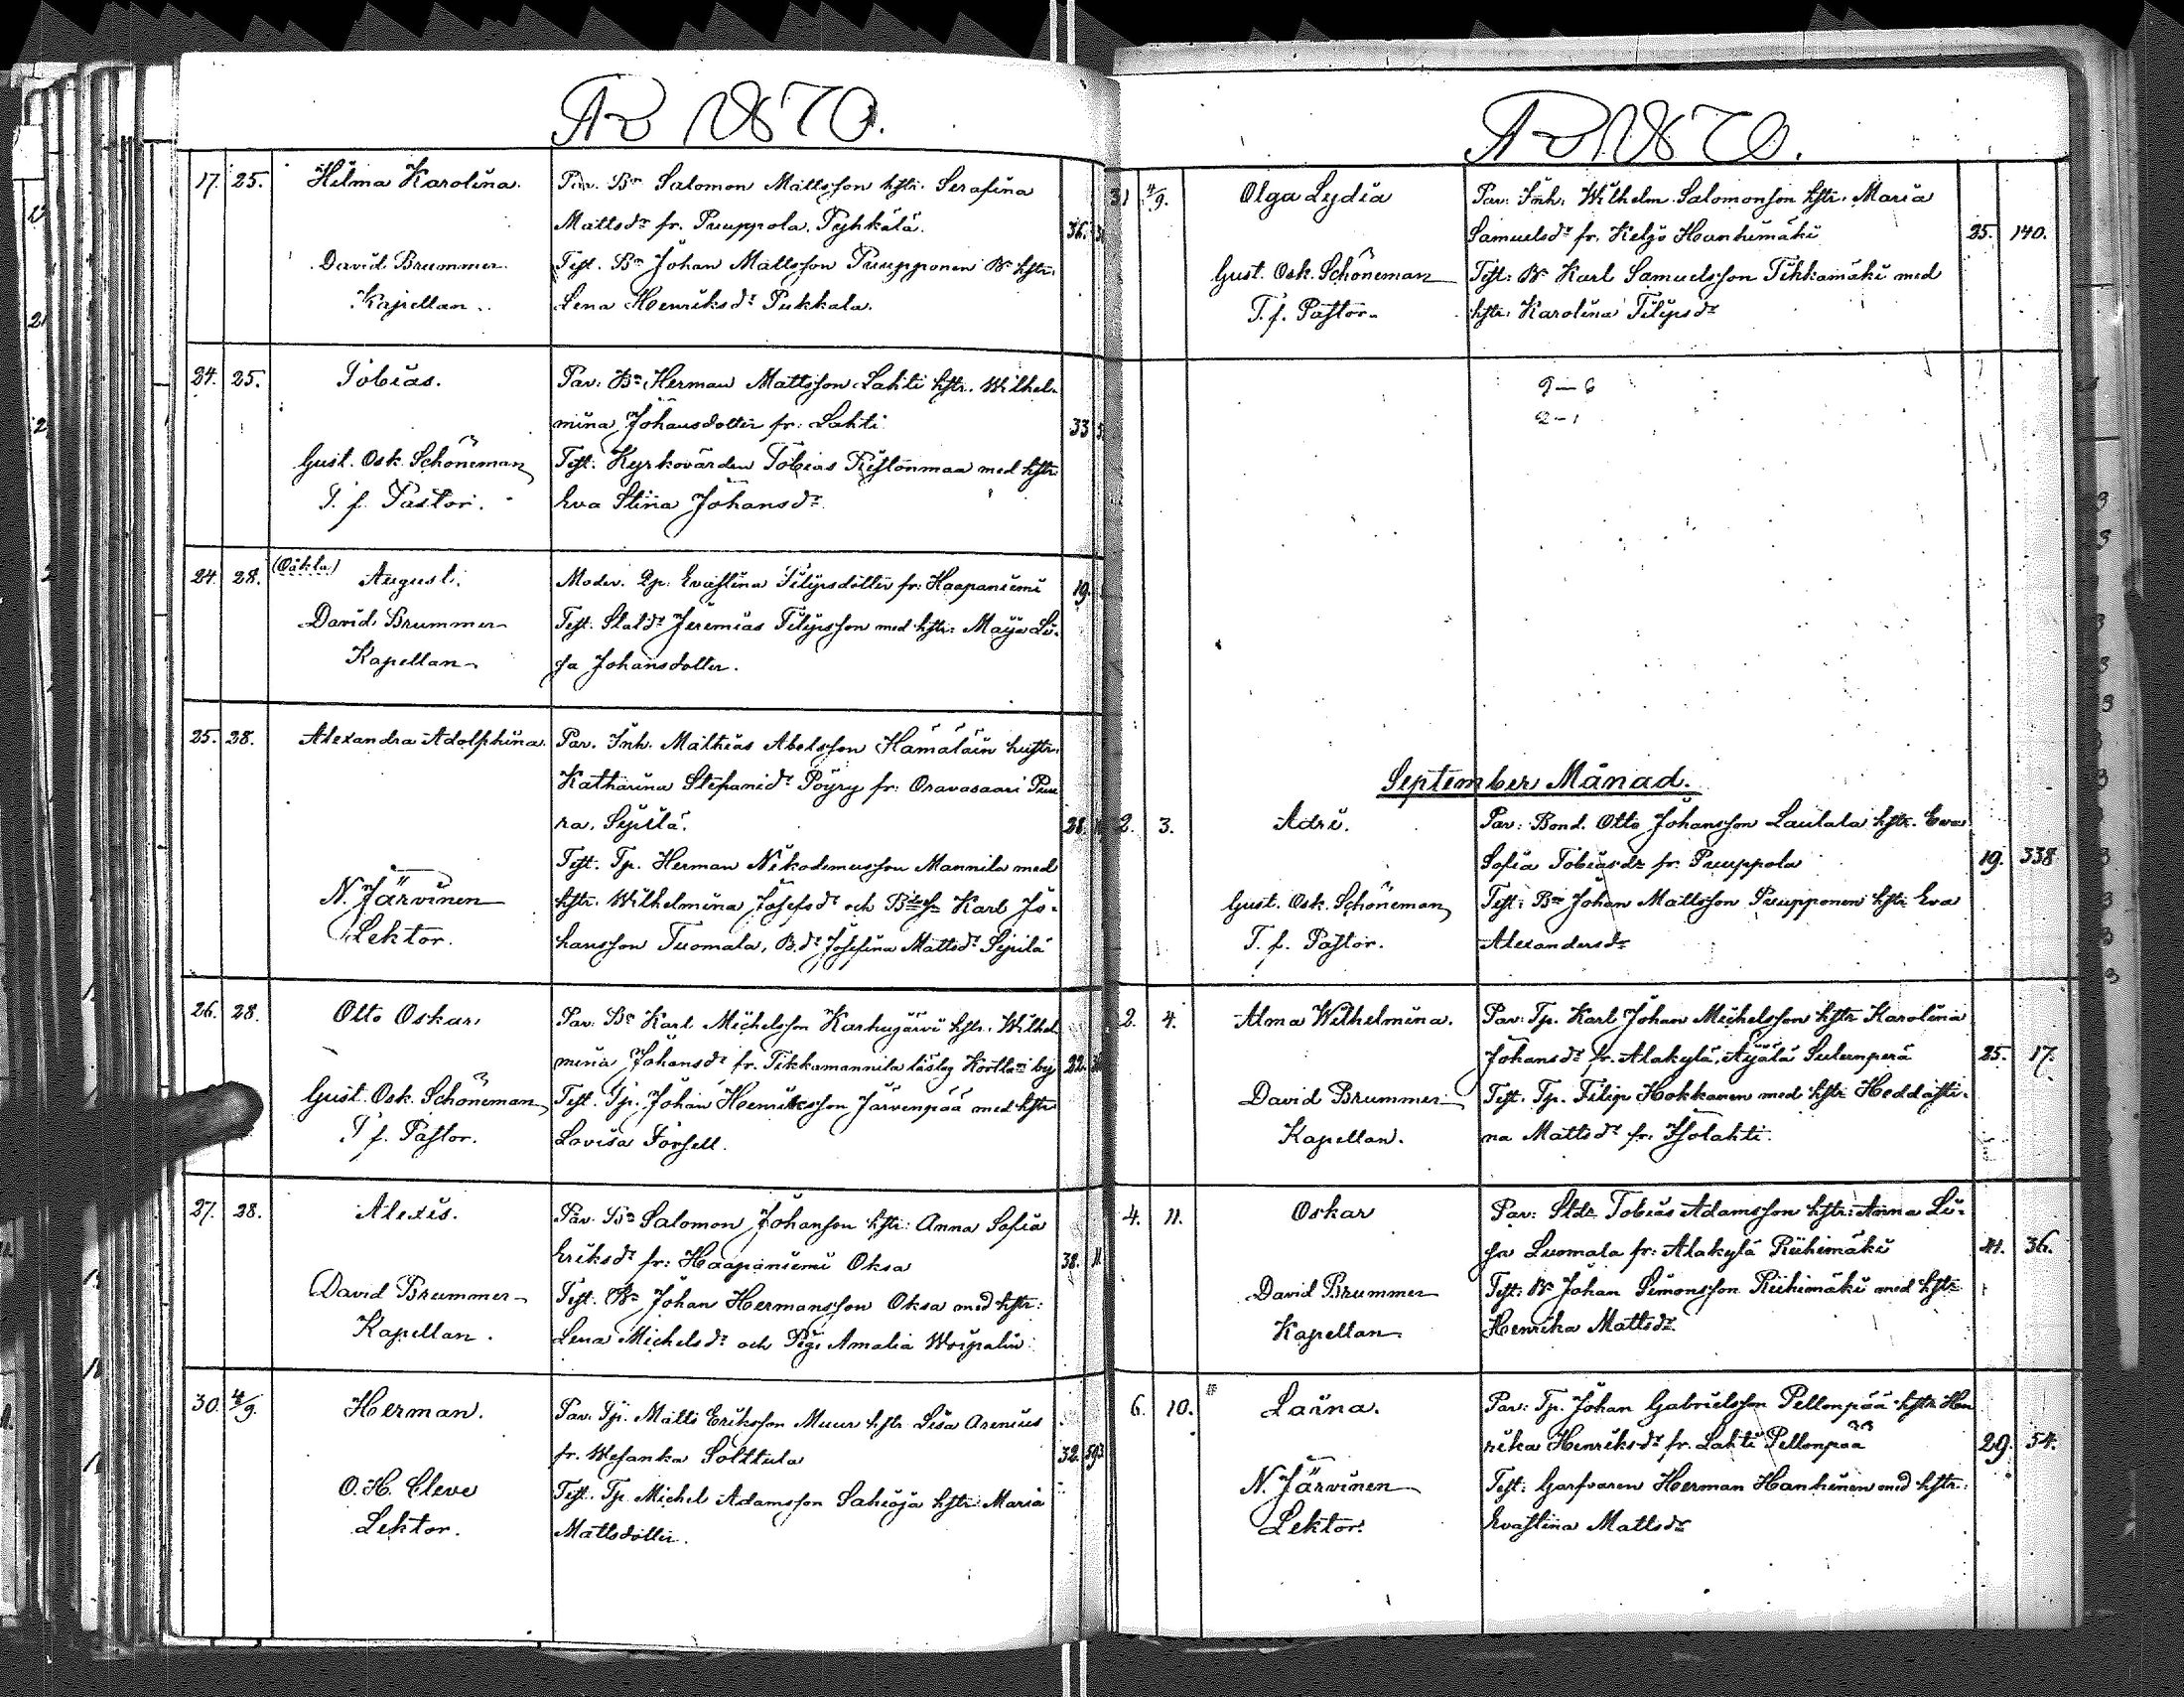 År 1870.
17. 25. Hilma Karolina. Par. Bn Salomon Mattsson hstr. Serafina
Mattsdr fr. Puuppola, Pyhkälä. 36.
David Brummer Test. Bn Johan Mattsson Puupponen hstr.
Kapellan Lena Henriksdr Pukkala.
24. 25. Tobias. Par: Bn Herman Mattsson Lahti hstr. Wilhel-
mina Johansdotter fr: Lahti 33
Gust. Osk. Schöneman Test: Kyrkovärden Tobias Ristonmaa med hstr
T. f. Pastor. Eva Stina Johansdr
24. 28. (Oäkta) August. Moder. Pp. Evastina Filipsdotter fr: Haapaniemi 19.
David Brummer Test. Staldr Jeremias Filipsson med hstr: Maija Li-
Kapellan sa Johansdotter.
25. 28. Alexandra Adolphina. Par. Inh. Mathias Abelsson Hämäläin hustr.
Katharina Stefanidr Pöyry fr: Oravasaari
ra, Sipilä. 28.
Test. Tp. Herman Nikodemusson Mannila med
N. Järvinen hstr. Wilhelmina Josefsdr och Karl Jo-
Lektor. hansson Tuomala, B.dr Josefina Mattsdr Sipilä
26. 28. Otto Oskar. Par: Bn Karl Michelsson Karhujärvi hstr. Wilhel
mina Johansdr fr. Tikkamannila by 22.
Gust. Osk. Schöneman Test. Tp. Johan Henriksson Järvenpää med hstr
T. f. Pastor. Lovisa Forsell.
27. 28. Alexis. Par. Bn Salomon Johanson hstr: Anna Sofia
Eriksdr fr: Haapaniemi Oksa 38.
David Brummer Test. Bn Johan Hermansson Oksa med hstr:
Kapellan. Lena Michelsdr och Pig. Amalia
30. 4/9. Herman. Par: Tp. Matti Eriksson Muur hstr Lisa Arenius
fr. Wesanka Solttula 32. 593
O. H. Cleve Test. Tp. Michel Adamsson Sahioja hstr: Maria
Lektor. Mattsdotter.
År 1870.
31 4/9. Olga Lydia Par: Inh. Wilhelm Salomonson hstr. Maria
Samuelsdr fr. Keljo Hanhimäki 25. 140.
Gust. Osk. Schöneman Test: Bn Karl Samuelsson Tikkamäki med
T. f. Pastor hstr: Karolina Filipsdr
9 – 6
2 – 1
September Månad.
2. 3. Adri. Par: Bond. Otto Johansson Laulala hstr. Eva
Sofia Tobiasdr fr. Puuppola 19. 338
Gust. Osk. Schöneman Test: Bn Johan Mattsson Puupponen hstr Eva
T. f. Pastor. Alexandersdr
2. 4. Alma Wilhelmina. Par: Tp. Karl Johan Michelsson hstr Karolina
Johansdr fr. Alakylä, Äijälä Sulunperä 25. 17.
David Brummer Test. Tp. Filip Hokkanen med hstr Heddasti-
Kapellan. na Mattsdr fr. Isolahti.
4. 11. Oskar Par: Stdr Tobias Adamsson hstr: Anna Li-
sa Luomala fr: Alakylä Riihimäki 41. 36.
David Brummer Test: Bn Johan Simonsson Riihimäki med hstr
Kapellan. Henrika Mattsdr.
6. 10. Laina. Par: Tp. Johan Gabrielsson Pellonpää hstr Hen
rika Henriksdr fr. Lahti Pellonpää 29. 54.
N. Järvinen Test: Garfvaren Herman Hanhinen med hstr:
Lektor. Evastina Mattsdr